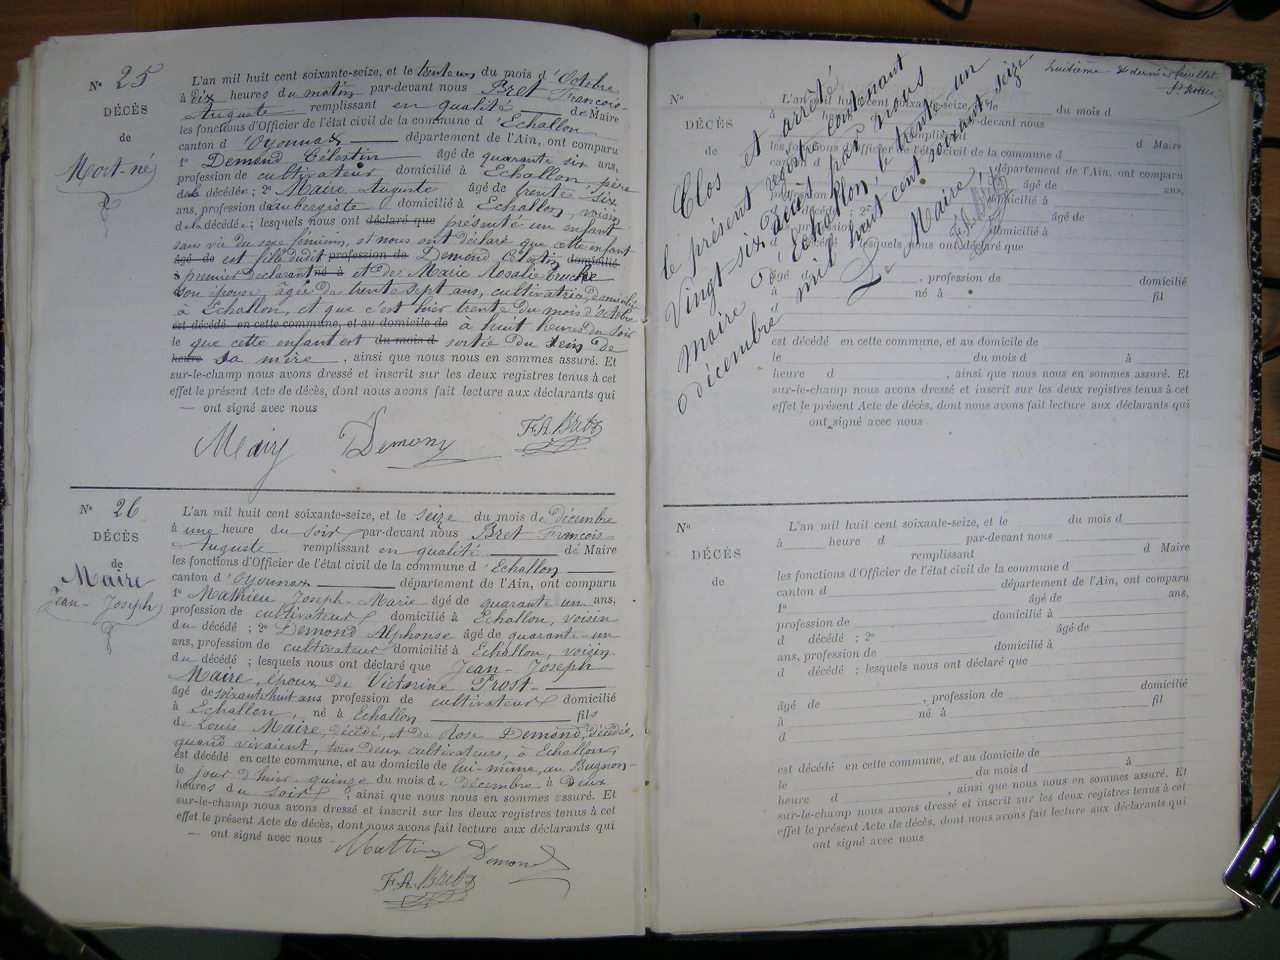 N° 25
DÉCÈS
de
Mort-né
L'an mil huit cent soixante-seize, et le trente un du mois d'Octobre
à dix heures du matin par-devant nous Bret François-
Auguste remplissant en qualité de Maire
les fonctions d'Officier de l'état civil de la commune d'Echallon
canton d'Oyonnax département de l'Ain, ont comparu
1° Demond Célestin âgé de quarante six ans,
profession de cultivateur domicilié à Echallon, père
de la décédée ; 2° Maire Auguste âgé de trente six
ans, profession d'aubergiste domicilié à Echallon, voisin
de la décédée ; lesquels nous ont déclaré que présenté un enfant
sans vie du sexe féminin, et nous ont déclaré que cette enfant
âgé de est fille dudit profession de Demond Célestin domicilié
à premier déclarant né à et de Marie Rosalie
son épouse, âgée de trente sept ans, cultivatrice, domiciliée
à Echallon, et que c'est hier trente du mois d'octobre
est décédé en cette commune, et au domicile de à huit heures du soir
le que cette enfant est du mois d sortie du sein de
heure sa mère , ainsi que nous nous en sommes assuré. Et
sur-le-champ nous avons dressé et inscrit sur les deux registres tenus à cet
effet le présent Acte de décès, dont nous avons fait lecture aux déclarants qui
— ont signé avec nous
Mairy Demony F.A. Bret
N° 26
DÉCÈS
de
Maire
Jean-Joseph
L'an mil huit cent soixante-seize, et le seize du mois de décembre
à une heure du soir par-devant nous Bret François
Auguste remplissant en qualité de Maire
les fonctions d'Officier de l'état civil de la commune d'Echallon
canton d'Oyonnax département de l'Ain, ont comparu
1° Mathieu Joseph-Marie âgé de quarante un ans,
profession de cultivateur domicilié à Echallon, voisin
du décédé ; 2° Demond Alphonse âgé de quarante-un
ans, profession de cultivateur domicilié à Echallon, voisin
du décédé ; lesquels nous ont déclaré que Jean-Joseph
Maire, époux de Victorine Prost
âgé de soixante huit ans profession de cultivateur domicilié
à Echallon, né à Echallon fils
de Louis Maire, décédé, et de Rose Demond, décédée,
quand vivaient, tous deux cultivateurs, à Echallon,
est décédé en cette commune, et au domicile de lui-même, au Bugnon
le jour d'hier quinze du mois de décembre à Deux
heures du soir , ainsi que nous nous en sommes assuré. Et
sur-le-champ nous avons dressé et inscrit sur les deux registres tenus à cet
effet le présent Acte de décès, dont nous avons fait lecture aux déclarants qui
— ont signé avec nous
Mathieu Demond
F.A. Bret
huitième & dernier feuillet
Clos et arrêté
le présent registre contenant
Vingt six actes par nous
Maire d'Echallon, le trente un
décembre mil huit cent soixante seize
Le Maire,
N°
DÉCÈS
de
L'an mil huit cent soixante-seize, et le du mois d
à heure d par-devant nous
remplissant d Maire
les fonctions d'Officier de l'état civil de la commune d
canton d département de l'Ain, ont comparu
1° âgé de ans,
profession de domicilié à
d décédé ; 2° âgé de
ans, profession de domicilié à
d décédé ; lesquels nous ont déclaré que
âgé de , profession de domicilié
à né à fil
d
est décédé en cette commune, et au domicile de
le du mois d à
heure d , ainsi que nous nous en sommes assuré. Et
sur-le-champ nous avons dressé et inscrit sur les deux registres tenus à cet
effet le présent Acte de décès, dont nous avons fait lecture aux déclarants qui
ont signé avec nous
N°
DÉCÈS
de
L'an mil huit cent soixante-seize, et le du mois d
à heure d par-devant nous
remplissant d Maire
les fonctions d'Officier de l'état civil de la commune d
canton d département de l'Ain, ont comparu
1° âgé de ans,
profession de domicilié à
d décédé ; 2° âgé de
ans, profession de domicilié à
d décédé ; lesquels nous ont déclaré que
âgé de , profession de domicilié
à né à fil
d
est décédé en cette commune, et au domicile de
le du mois d à
heure d , ainsi que nous nous en sommes assuré. Et
sur-le-champ nous avons dressé et inscrit sur les deux registres tenus à cet
effet le présent Acte de décès, dont nous avons fait lecture aux déclarants qui
ont signé avec nous